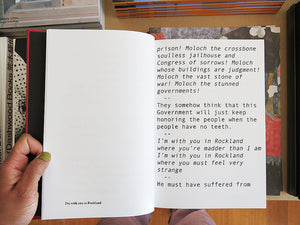 Dashwood Books
I'm with you in Rockland
prison! Moloch the crossbone
soulless jailhouse and
Congress of sorrows! Moloch
whose buildings are judgment!
Moloch the vast stone of
war! Moloch the stunned
governments!
--
They somehow think that this
Government will just keep
honoring the people when the
people have no teeth.
--
I'm with you in Rockland
where you're madder than I am
I'm with you in Rockland
where you must feel very
strange
--
He must have suffered from